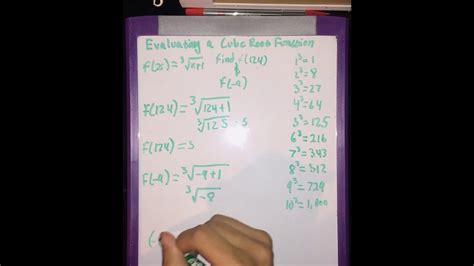 Evaluating a Cube Root Function
F(x)=∛x+1 Find F(124)
&
F(-9)
F(124)=∛124+1
∛125=5
F(124)=5
F(-9)=∛-9+1
∛-8
(-
1³=1
2³=8
3³=27
4³=64
5³=125
6³=216
7³=343
8³=512
9³=729
10³=1,000